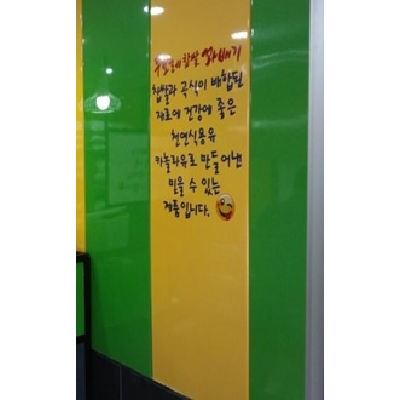 찹쌀 꽈배기
찹쌀과 곡식이 배합된
재료에 건강에 좋은
천연식용유
카놀라유로 만들어낸
믿을 수 있는
제품입니다.